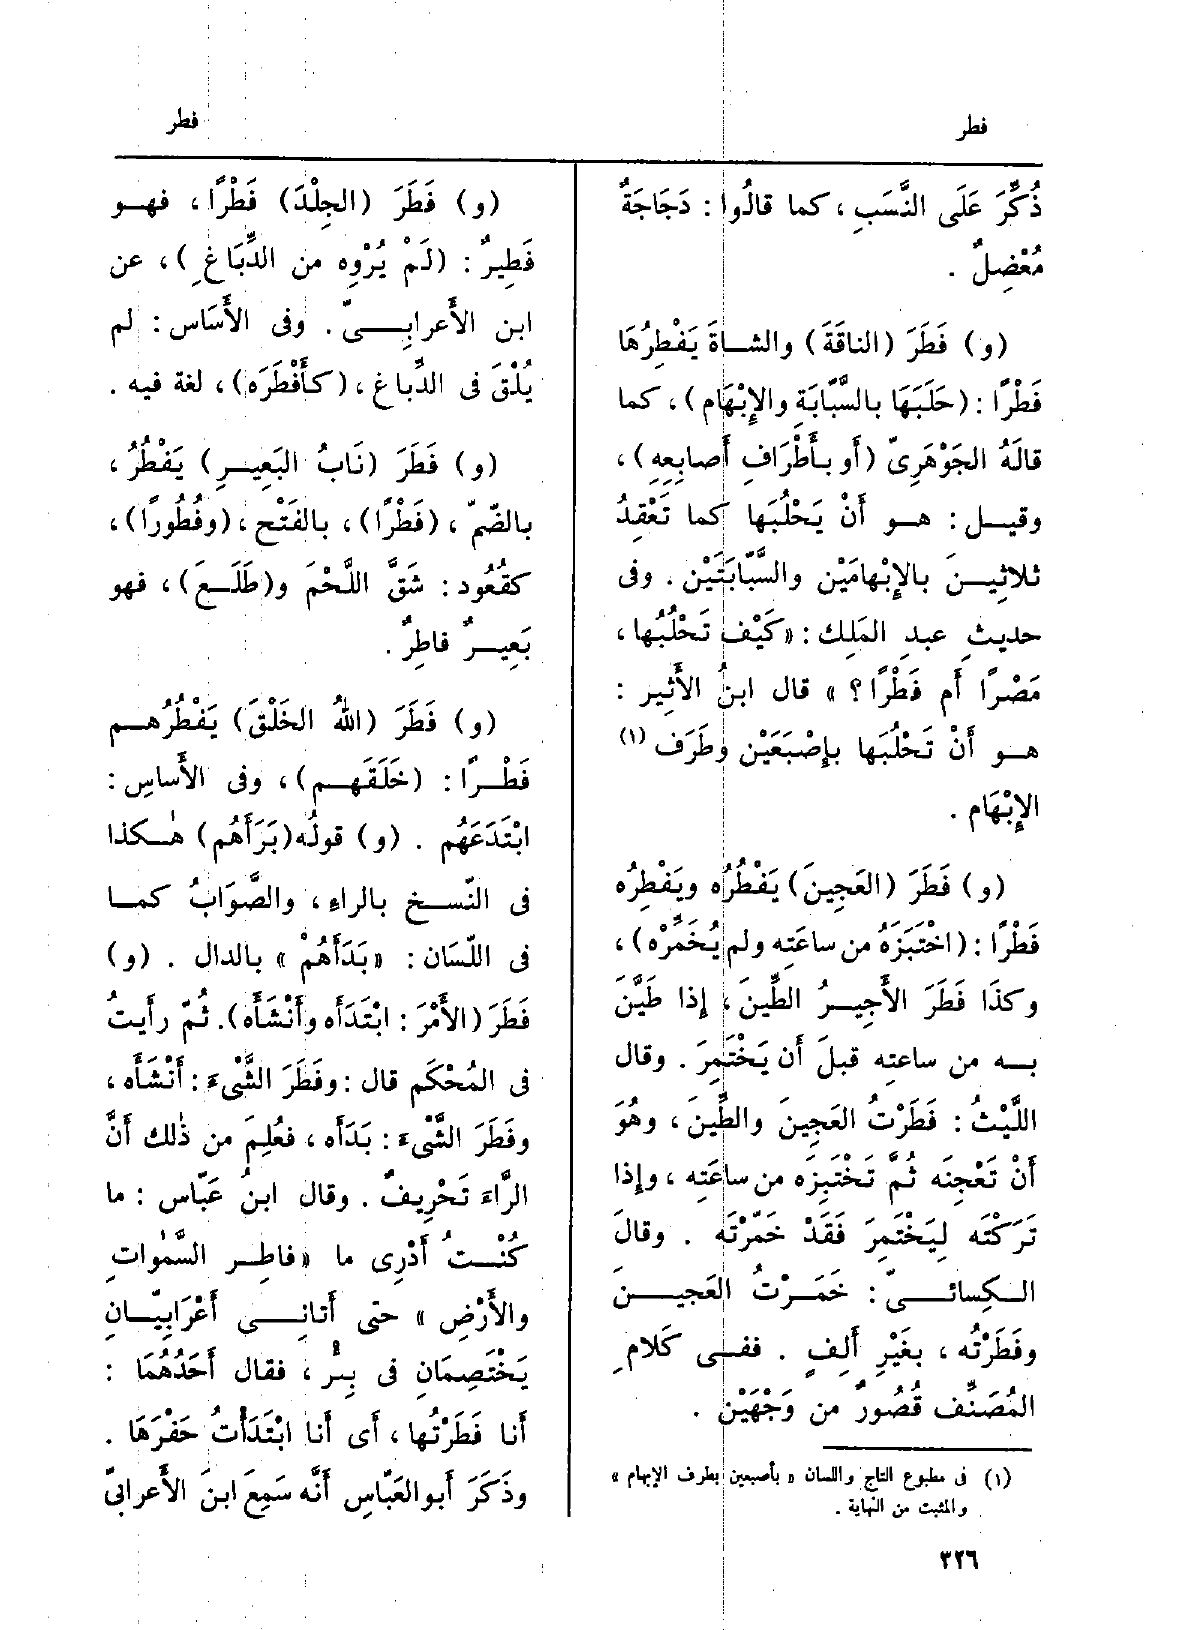 فطر
فطر
ذُكِّرَ عَلَى النَّسَبِ ، كما قالُوا : دَجَاجَةٌ
مُعْضِلٌ .
(و) فَطَرَ (الناقَةَ) والشاةَ يَفْطِرُهَا
فَطْرًا : (حَلَبَهَا بالسَّبّابَةِ والإِبْهَام) ، كما
قالَهُ الجَوْهَرِىّ (أو بأَطْرَافِ أَصابِعِه) ،
وقيل : هو أَنْ يَحْلُبَها كما تَعْقِدُ
ثلاثِينَ بالإِبْهامَيْن والسَّبّابَتَيْن . وفى
حديثِ عبدِ المَلِك : «كَيْف تَحْلُبُها ،
مَصْرًا أَم فَطْرًا ؟ » قال ابنُ الأَثِير :
هو أَنْ تَحْلُبَها بإِصْبَعَيْن وطَرَف (١)
الإِبْهَام .
(و) فَطَرَ (العَجِينَ) يَفْطُرُه ويَفْطِرُه
فَطْرًا : (اخْتَبَزَهُ من ساعَتِه ولم يُخَمِّرْه) ،
وكذَا فَطَرَ الأَجِيرُ الطِّينَ ، إِذا طَيَّنَ
به من ساعتِه قبلَ أَن يَخْتَمِرَ . وقال
اللَّيْثُ : فَطَرْتُ العَجِينَ والطِّينَ ، وهُوَ
أَنْ تَعْجِنَه ثُمَّ تَخْتَبِزَه من ساعَتِه ، وإِذا
تَرَكْتَه لِيَخْتَمِرَ فَقَدْ خَمَّرْتَه . وقالَ
الكِسائىّ : خَمَرْتُ العَجِينَ
وفَطَرْتُه ، بغَيْرِ أَلِفٍ . ففى كَلامِ
المُصَنِّف قُصُورٌ من وَجْهَيْن .
(١) فى مطبوع التاج واللسان « بأصبعين بطرف الإبهام »
والمثبت من النهاية .
٣٢٦
(و) فَطَرَ (الجِلْدَ) فَطْرًا ، فهو
فَطِيرٌ : (لَمْ يُرْوِه من الدِّبَاغِ) ، عن
ابن الأَعرابِىّ . وفى الأَسَاس : لم
يُلْقَ فى الدِّباغ ، (كأَفْطَرَه) ، لغة فيه .
(و) فَطَرَ (نَابُ البَعِيرِ) يَفْطُرُ ،
بالضّمّ ، (فَطْرًا) ، بالفَتْح ، (وفُطُورًا) ،
كقُعُود : شَقَّ اللَّحْمَ و(طَلَعَ) ، فهو
بَعِيرٌ فاطِرٌ .
(و) فَطَرَ (اللهُ الخَلْقَ) يَفْطُرُهم
فَطْرًا : (خَلَقَهم) ، وفى الأَساسِ :
ابْتَدَعَهُم . (و) قولُه (بَرَأَهُم) هٰكذا
فى النّسخ بالراءِ ، والصَّوَابُ كما
فى اللّسَان : «بَدَأَهُمْ» بالدال . (و)
فَطَرَ (الأَمْرَ : ابْتَدَأَه وأَنْشَأَه). ثُمّ رأَيتُ
فى المُحْكَم قال : وفَطَرَ الشَّىْءَ : أَنْشَأَه ،
وفَطَرَ الشَّىْءَ : بَدَأَه ، فعُلِمَ من ذٰلك أَنَّ
الرَّاءَ تَحْرِيفٌ . وقال ابنُ عَبّاس : ما
كُنْتُ أَدْرِى ما «فاطِر السَّمٰواتِ
والأَرْضِ » حتى أَتانِى أَعْرَابِيّانِ
يَخْتَصِمَانِ فى بِئْر ، فقال أَحَدُهُمَا :
أَنا فَطَرْتُها ، أَى أَنا ابْتَدَأْتُ حَفْرَهَا .
وذَكَرَ أَبو العَبّاس أَنَّه سَمِعَ ابنَ الأَعرابىّ